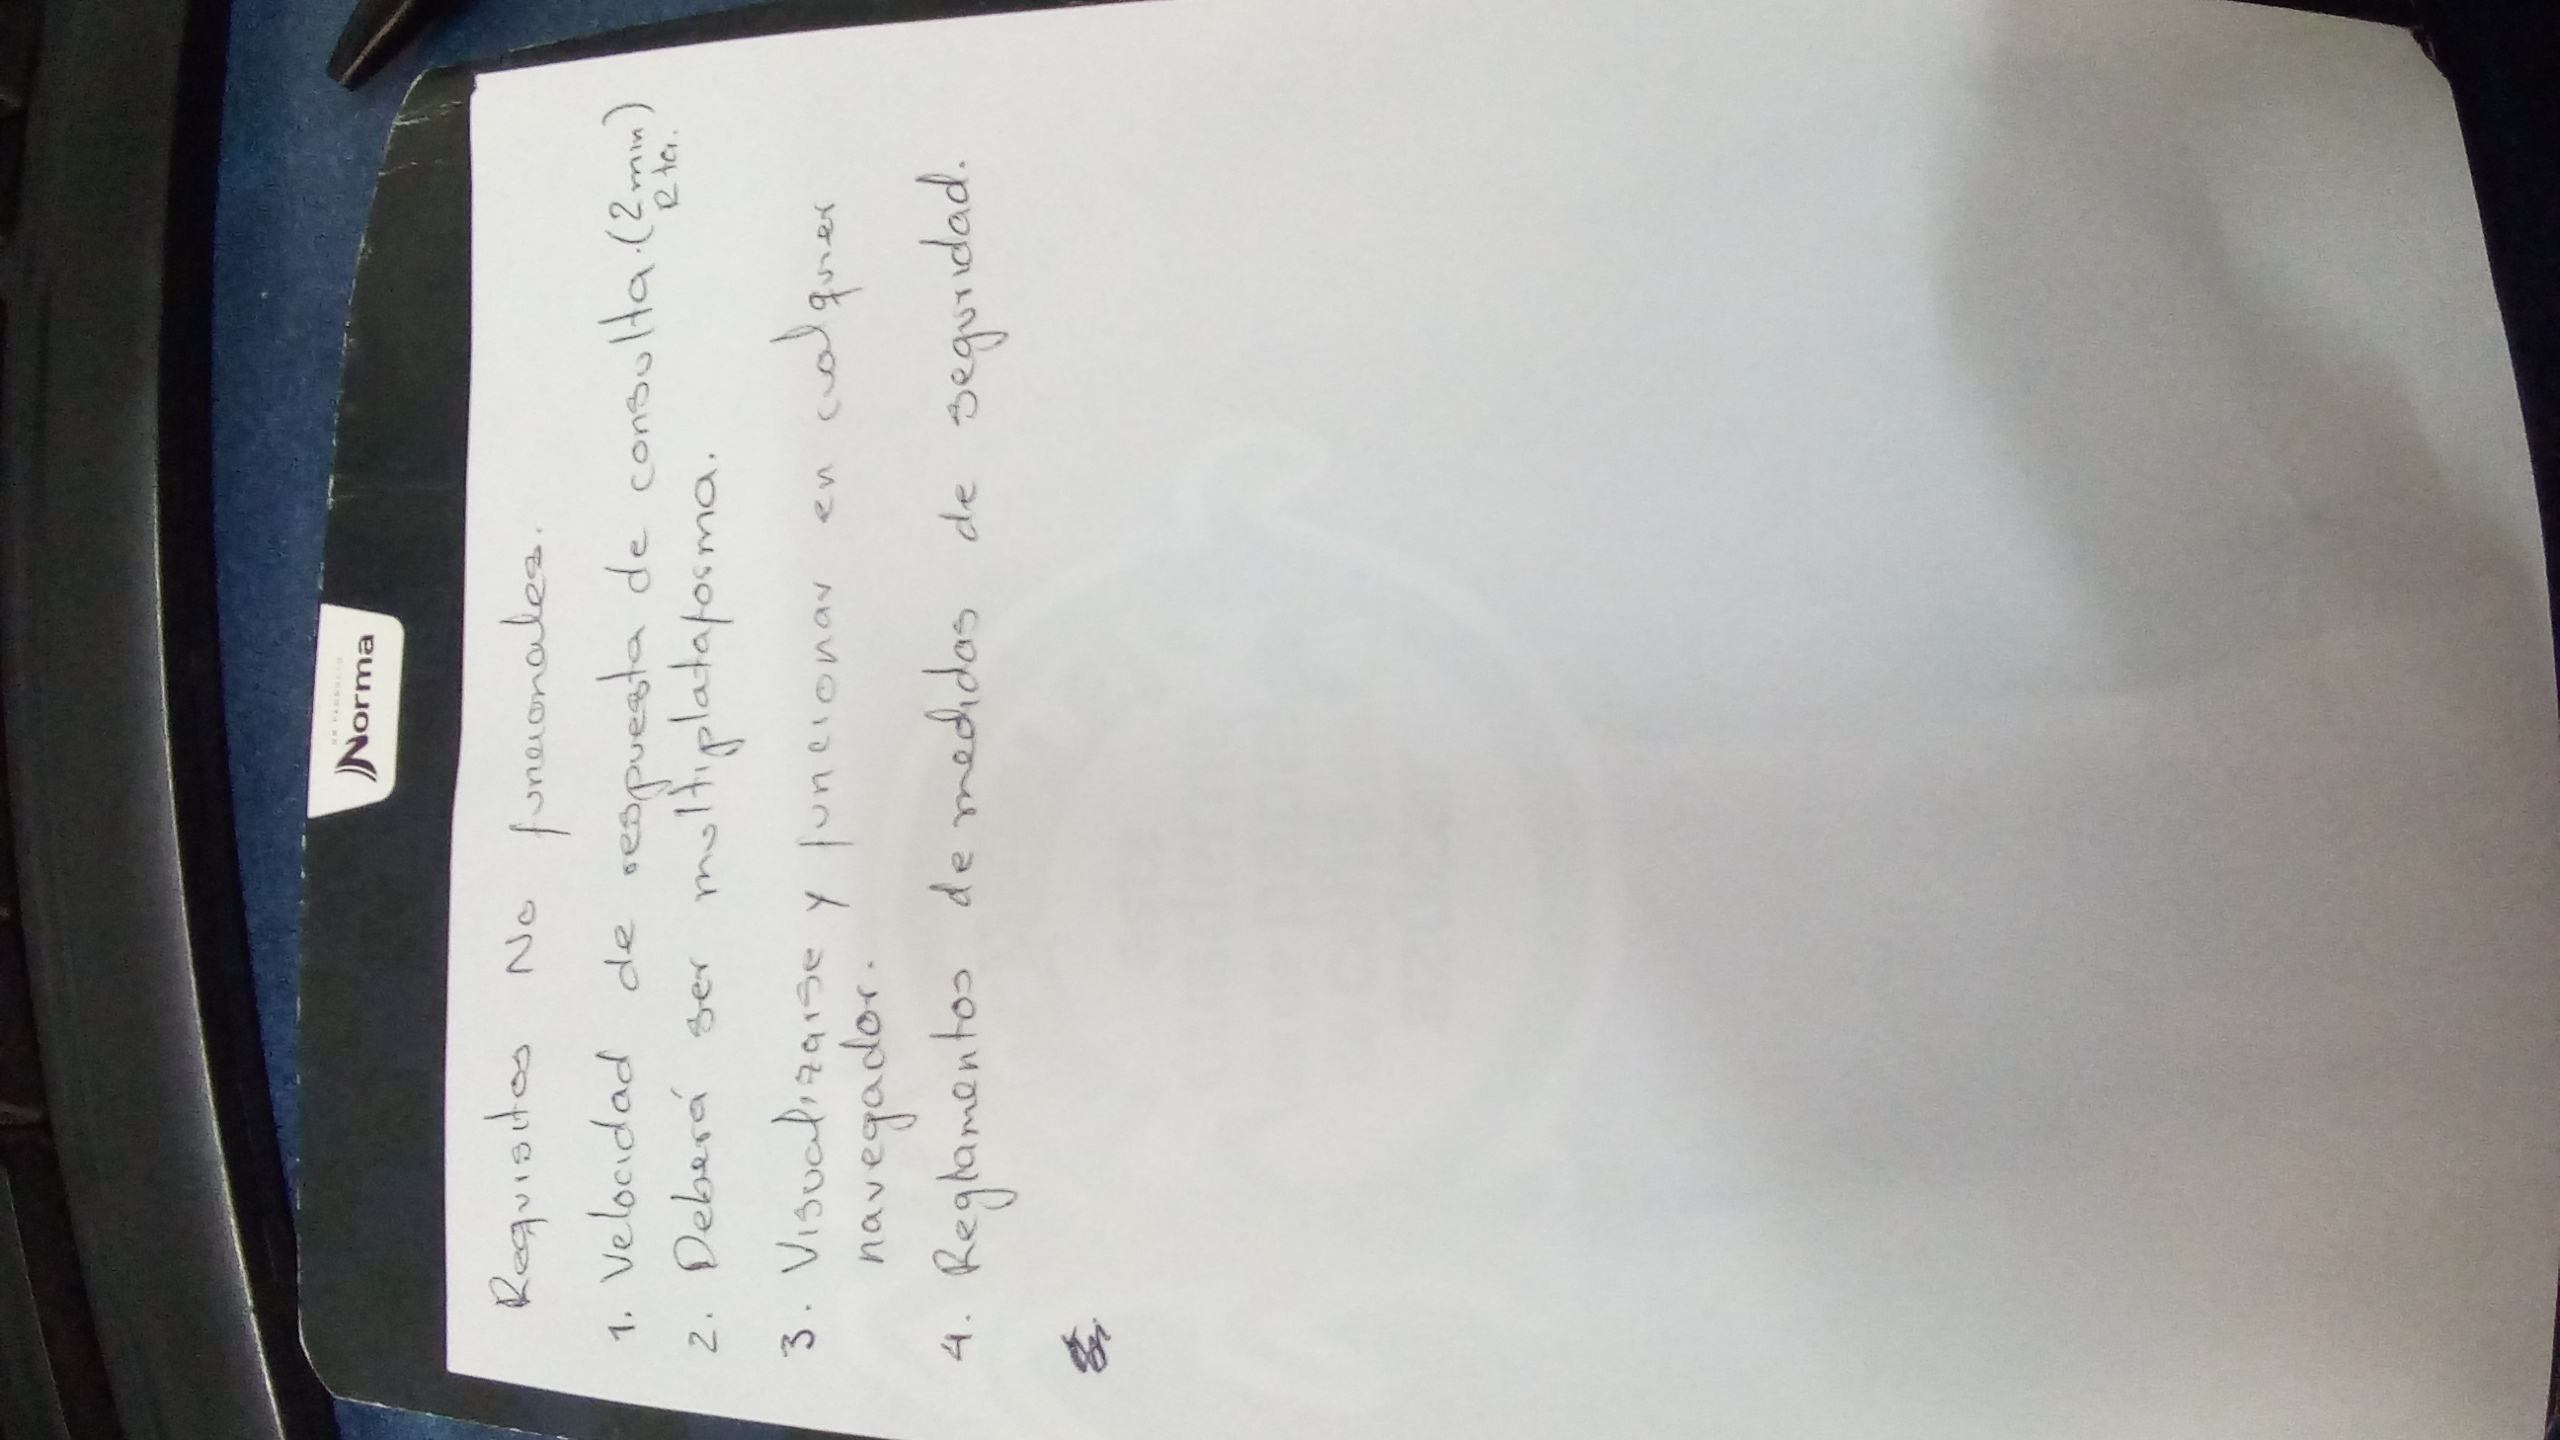 UN PRODUCTO
Norma
Requisitos No funcionales.
1. Velocidad de respuesta de consulta. (2 min)
Rta.
2. Deberá ser multiplataforma.
3. Visualizarse y funcionar en cualquier
navegador.
4. Reglamentos de medidas de seguridad.